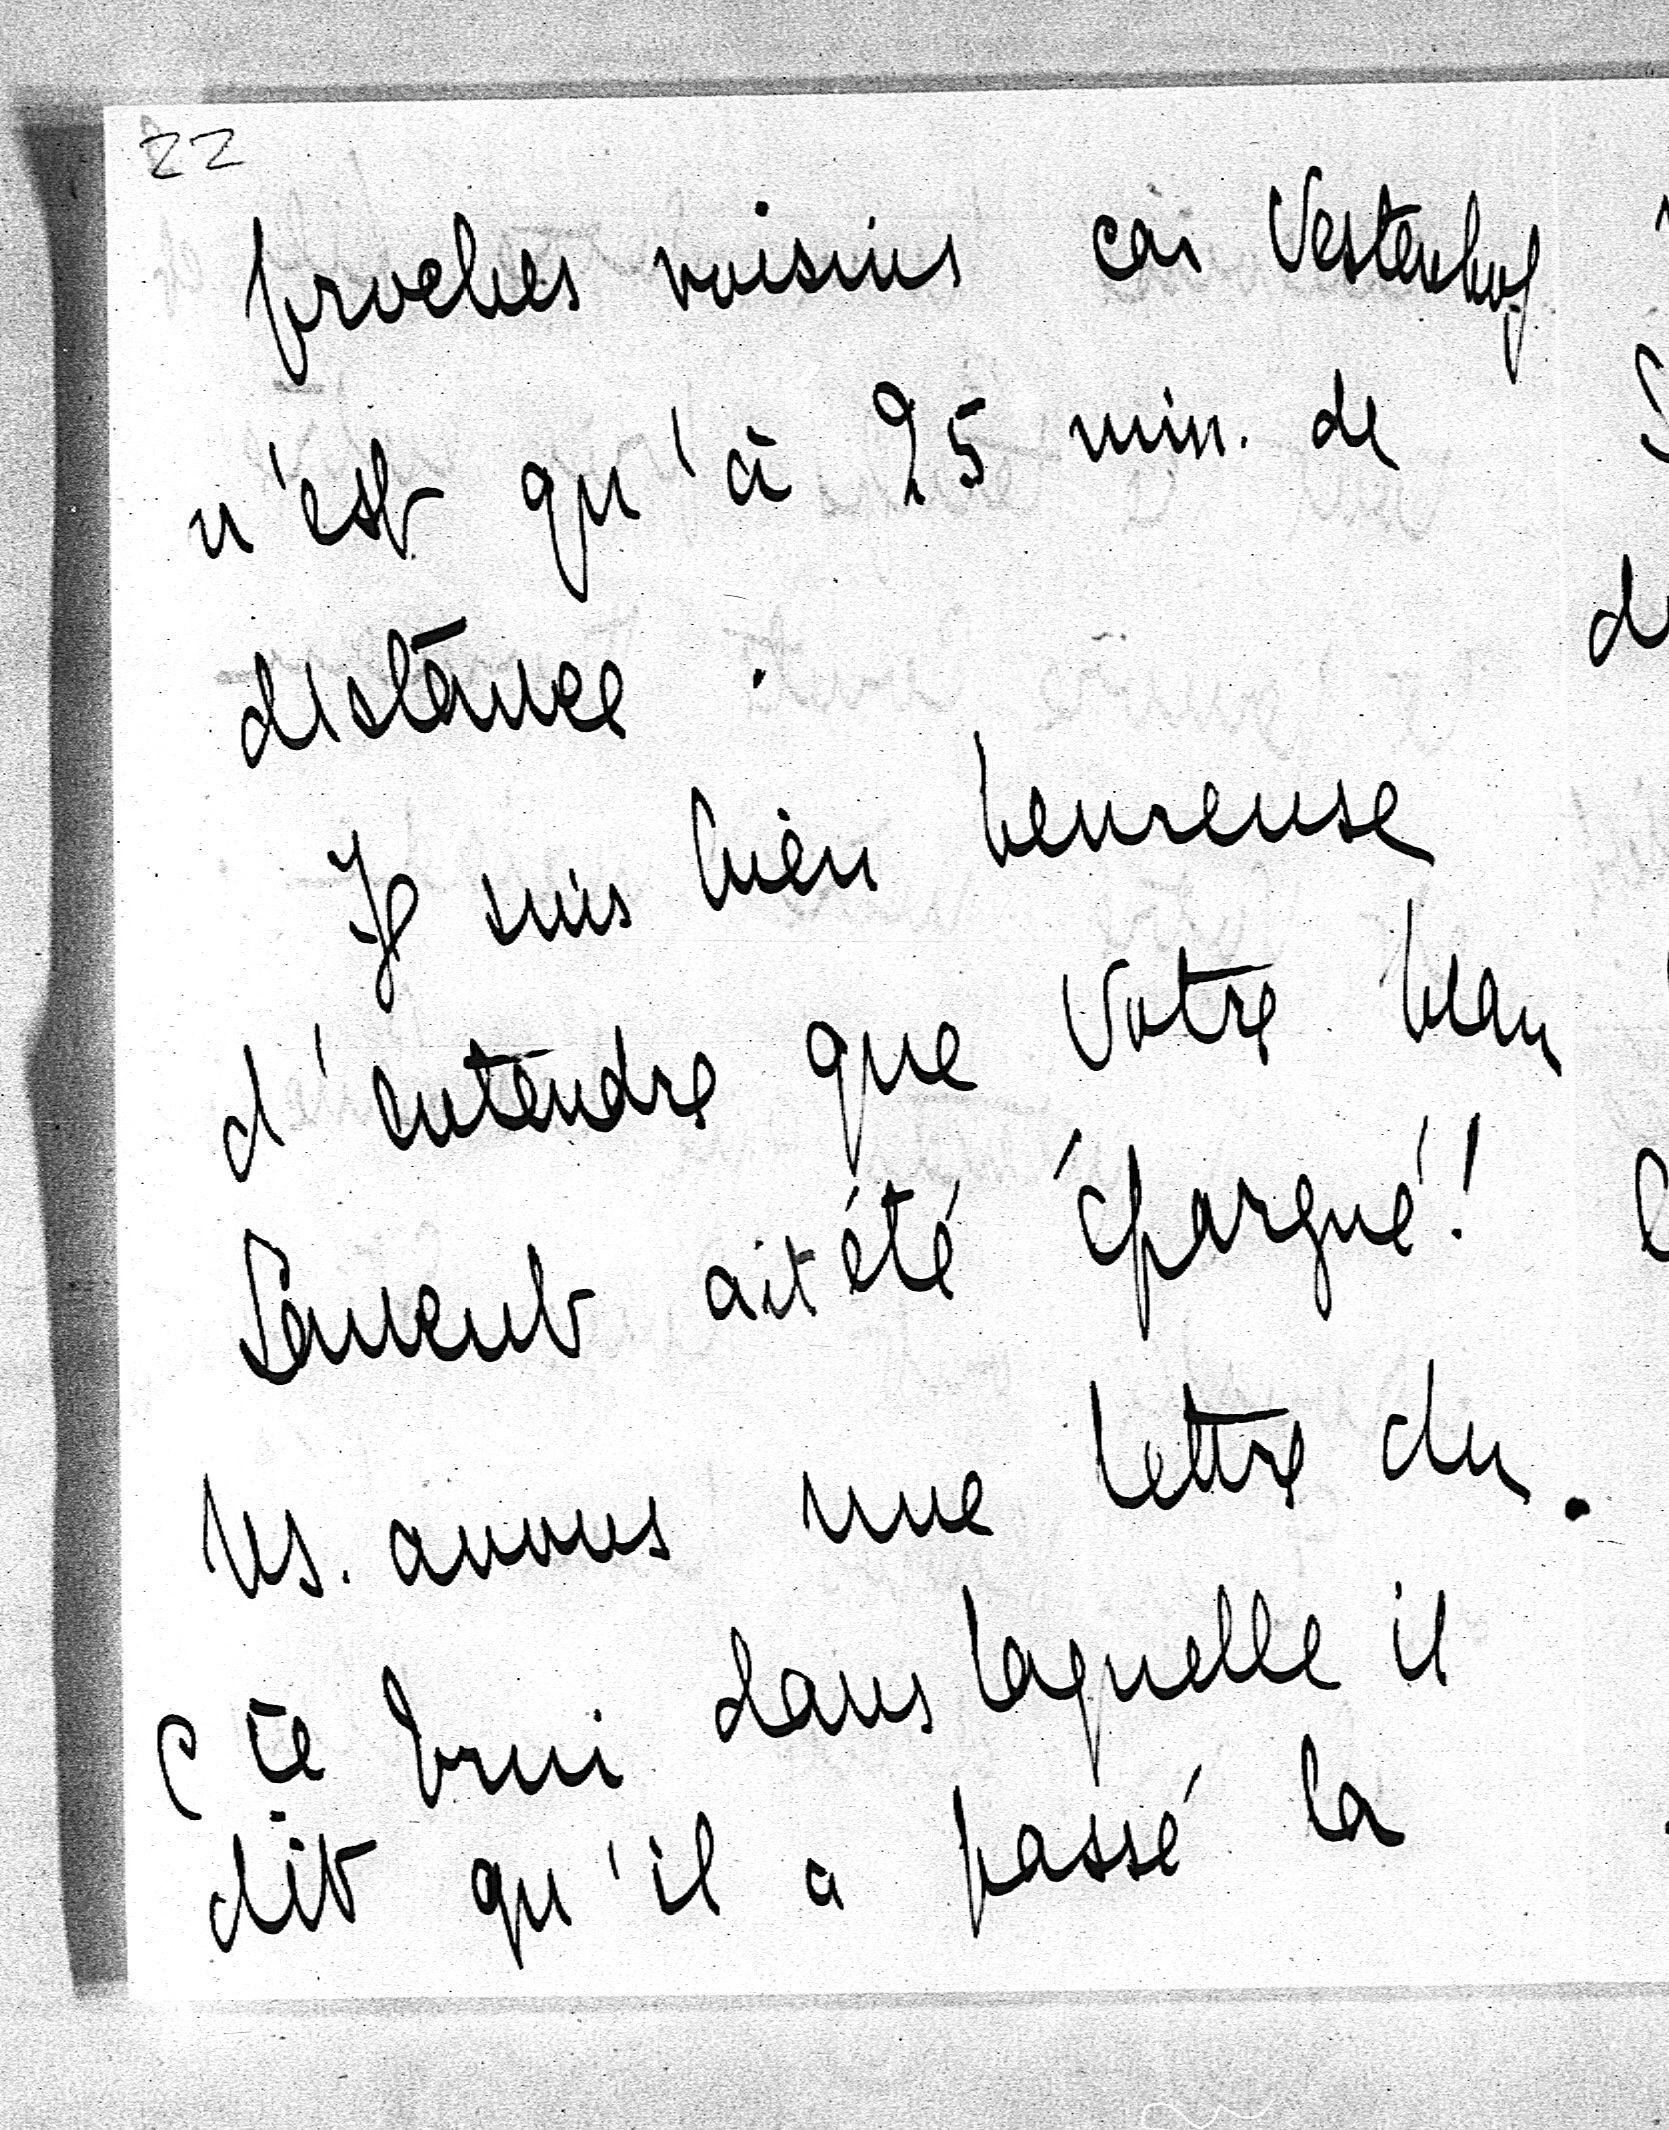 22
proches voisins car Vestenhof
n'est qu'à 25 min. de
distance.
Je suis bien heureuse
d'entendre que Votre beau
ait été épargné!
Ns. avons une lettre du
Cte dans laquelle il
dit qu'il a passé la